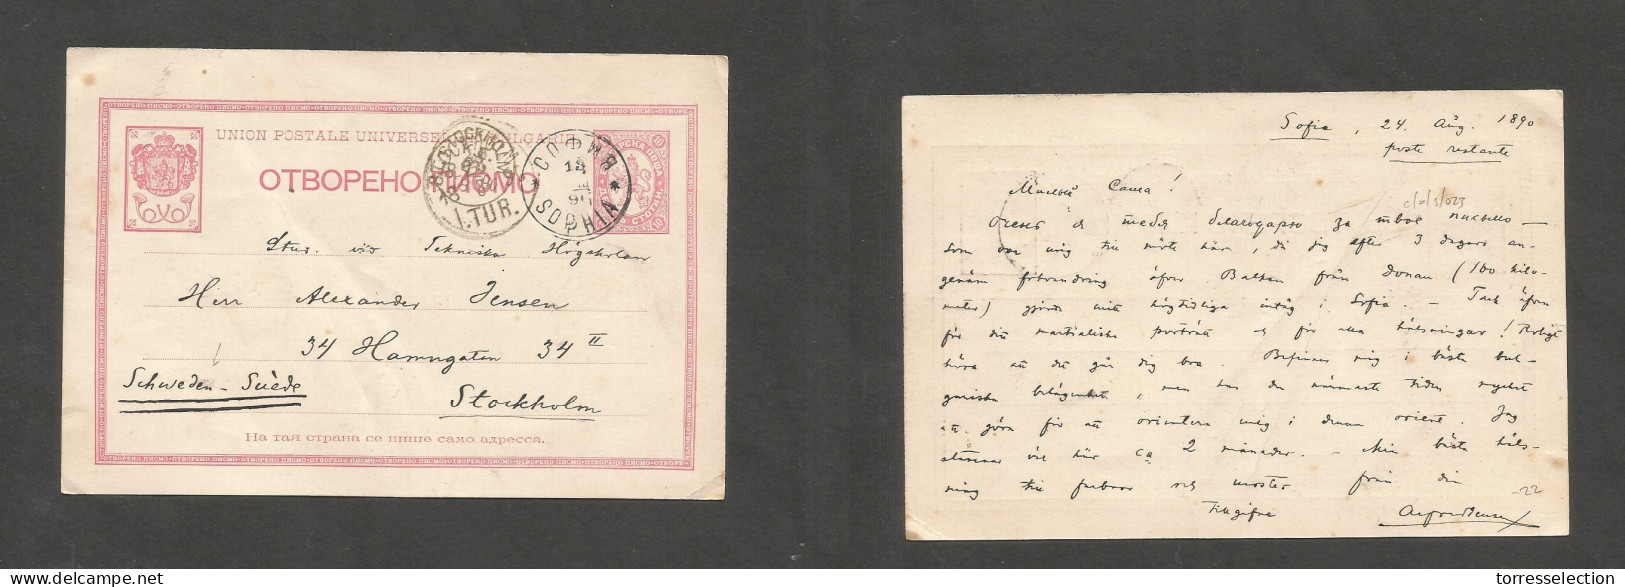 ОТВОРЕНО ПИСМО
UNION POSTALE UNIVERSE
STOCKHOLM
1.TUR.
СОФИЯ
SOPHIA
18
90
10
ОТВОРЕНО ПИСМО
Stud. vid Tekniska Högskolan
Herr Alexander Jensen
34 Hamngatan 34 II
Schweden - Suède
Stockholm
На тая страна се пише само адресса.
Sofia, 24. Aug. 1890
poste restante
Милый Саша!
Очень я тебя благодарю за твое письмо —
som var mig till mötes här, då jag efter 3 dagars an-
genäm fotvandring öfver Balkan från Donau (160 kilo-
meter) gjorde mitt högtidliga intåg i Sofia. — Tack äfven
för ditt martialiska porträtt och för alla hälsningar! Roligt
höra att det går dig bra. Befinner mig i bästa bul-
gariska belägenhet, men har den närmaste tiden mycket
att göra för att orientera mig i denna orient. Jag
stannar väl här ca 2 månader. — Min bästa häls-
ning till farbror och moster från din
tillgifne
-22
torresselection